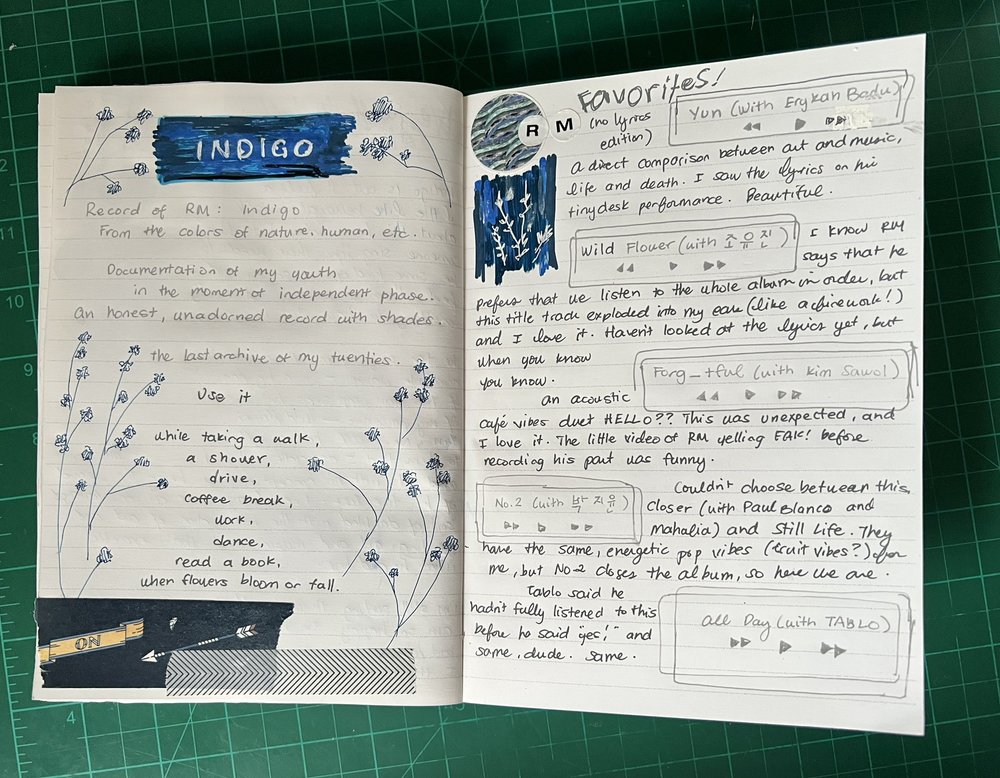 INDIGO
Record of RM: Indigo
From the colors of nature, human, etc.
Documentation of my youth
in the moment of independent phase.
An honest, unadorned record with shades.
the last archive of my twenties.
Use it
while taking a walk,
a shower,
drive,
coffee break,
work,
dance,
read a book,
when flowers bloom or fall.
ON
Favorites!
(no lyrics
edition)
R M
Yun (with Erykah Badu)
A direct comparison between art and music,
life and death. I saw the lyrics on his
tiny desk performance. Beautiful.
Wild Flower (with 조유진)
I know RM
says that he
prefers that we listen to the whole album in order, but
this title track exploded into my ears (like a firework!)
and I love it. Haven't looked at the lyrics yet, but
when you know
you know.
Forg_tful (with Kim Sawol)
an acoustic
café vibes duet HELLO?? This was unexpected, and
I love it. The little video of RM yelling before
recording his part was funny.
No.2 (with 박지윤)
Couldn't choose between this,
Closer (with Paul Blanco and
Mahalia) and Still Life. They
have the same, energetic pop vibes (fruit vibes?) for
me, but No 2 closes the album, so here we are.
Tablo said he
hadn't fully listened to this
before he said "yes!" and
same, dude. Same.
All Day (with TABLO)